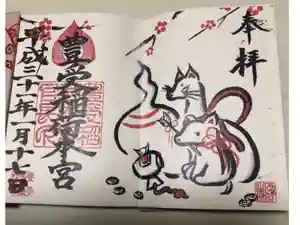 奉拝
豊営稲荷本宮
平成三十一年一月十七日